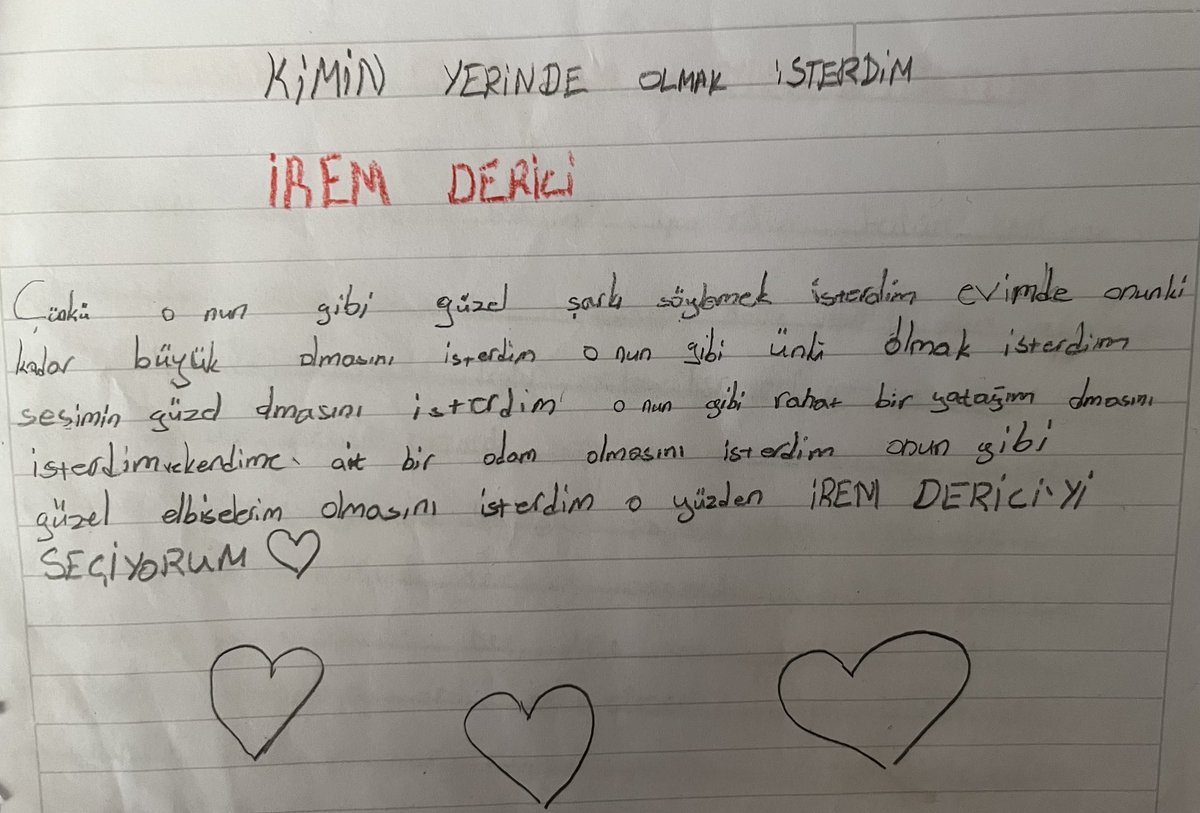 KİMİN YERİNDE OLMAK İSTERDİM
İREM DERİCİ
Çünkü o nun gibi güzel şarkı söylemek isterdim evimde onunki
kadar büyük olmasını isterdim o nun gibi ünlü olmak isterdim
seşimin güzel olmasını isterdim o nun gibi rahat bir yatağım olmasını
isterdimvekendime ait bir odam olmasını isterdim onun gibi
güzel elbiselerim olmasını isterdim o yüzden İREM DERİCİ'Yİ
SEÇİYORUM